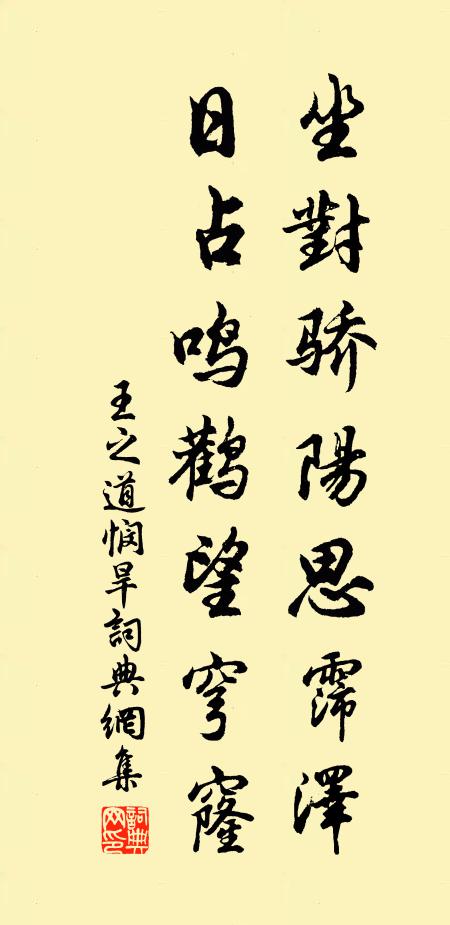 坐對骄陽思霈澤
日占鸣鹳望穹窿
王之道悯旱詞典網集
詞典網印